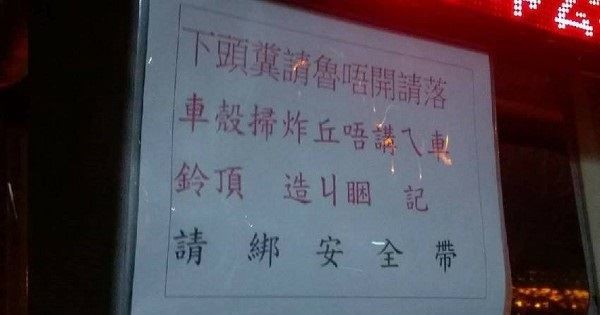 下頭糞請魯唔開請落
車殼掃炸丘唔講乀車
鈴頂 造丩睏 記
請綁安全帶